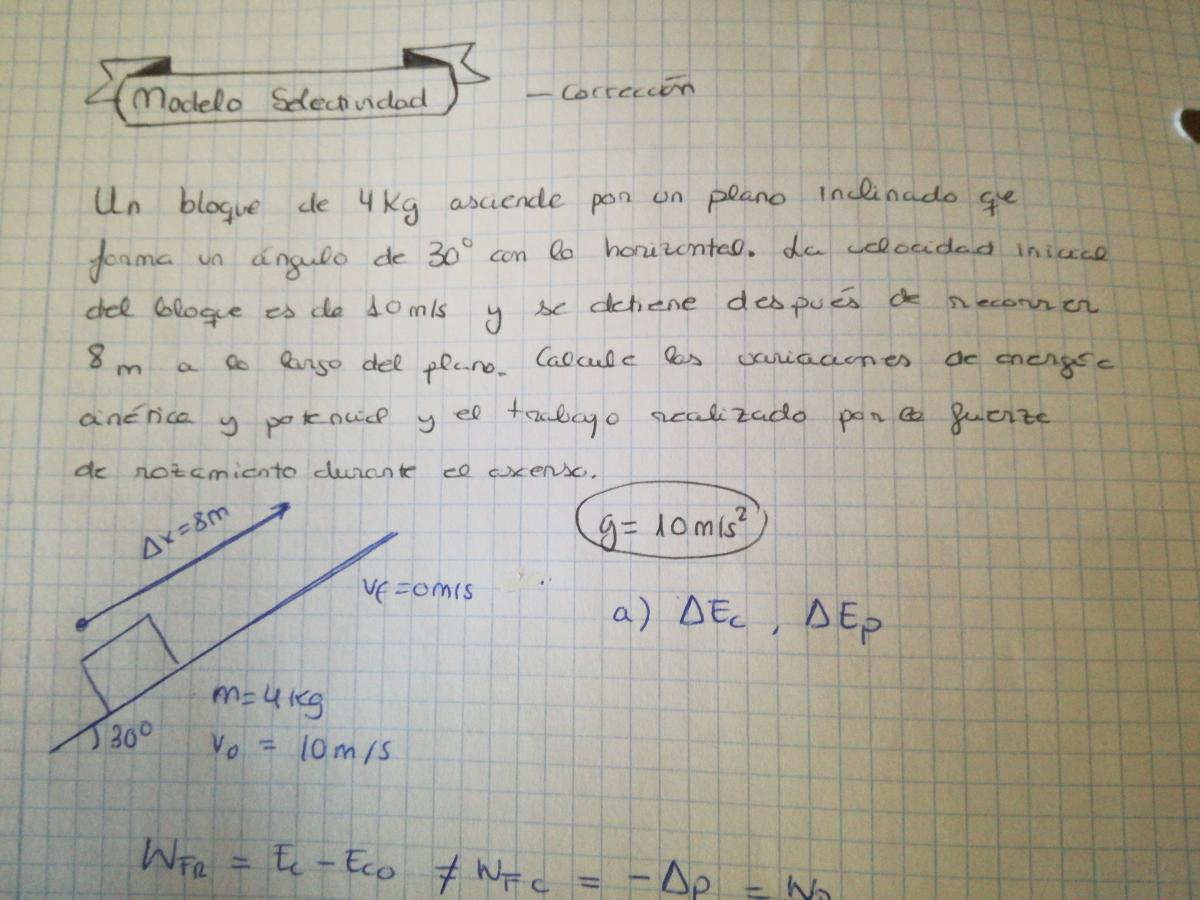 Modelo Selectividad — Corrección
Un bloque de 4 Kg asciende por un plano inclinado que
forma un ángulo de 30° con la horizontal. La velocidad inicial
del bloque es de 10 m/s y se detiene después de recorrer
8 m a lo largo del plano. Calcule las variaciones de energía
cinética y potencial y el trabajo realizado por la fuerza
de rozamiento durante el ascenso.
g = 10 m/s²
Δx = 8m
vf = 0 m/s
a) ΔEc , ΔEp
m = 4 Kg
30°
v0 = 10 m/s
WFR = Ec - Eco ≠ WFc = -Δp =